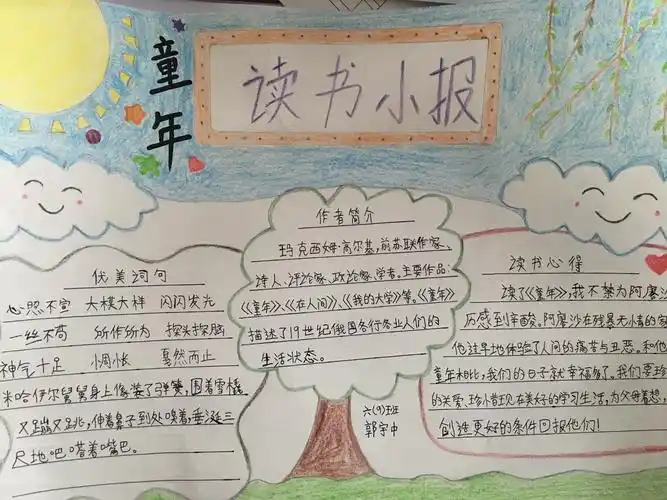 童年
读书小报
优美词句
心照不宣 大模大样 闪闪发光
一丝不苟 所作所为 探头探脑
神气十足 惆怅 戛然而止
米哈伊尔舅舅身上像装了弹簧，围着雪橇
又蹦又跳，伸着鼻子到处嗅着，垂涎三
尺地吧嗒着嘴巴。
作者简介
玛克西姆·高尔基，前苏联作家、
诗人、评论家、政论家、学者。主要作品：
《童年》、《在人间》、《我的大学》等。《童年》
描述了19世纪俄国各行各业人们的
生活状态。
六(9)班
郭宇中
读书心得
读了《童年》，我不禁为阿廖沙
历感到辛酸。阿廖沙在残暴无小青的家
他过早地体验了人间的痛苦与丑恶。和他
童年相比，我们的日子就幸福多了。我们要珍
的关爱、珍小昔现在美好的学习生活，为父母着想，
创造更好的条件回报他们！